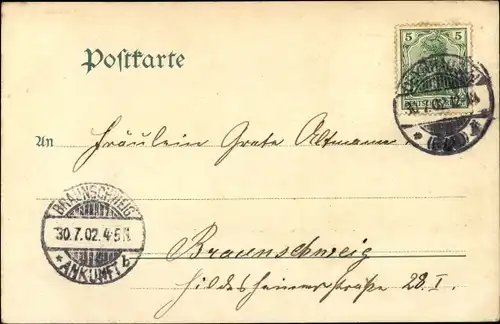 Postkarte
5 5
30.7.02.12-1N
An Fräulein Grete Altmann
BRAUNSCHWEIG
30.7.02.4-5N.
* ANKUNFT b
Braunschweig
Hildesheimerstraße 28.I.